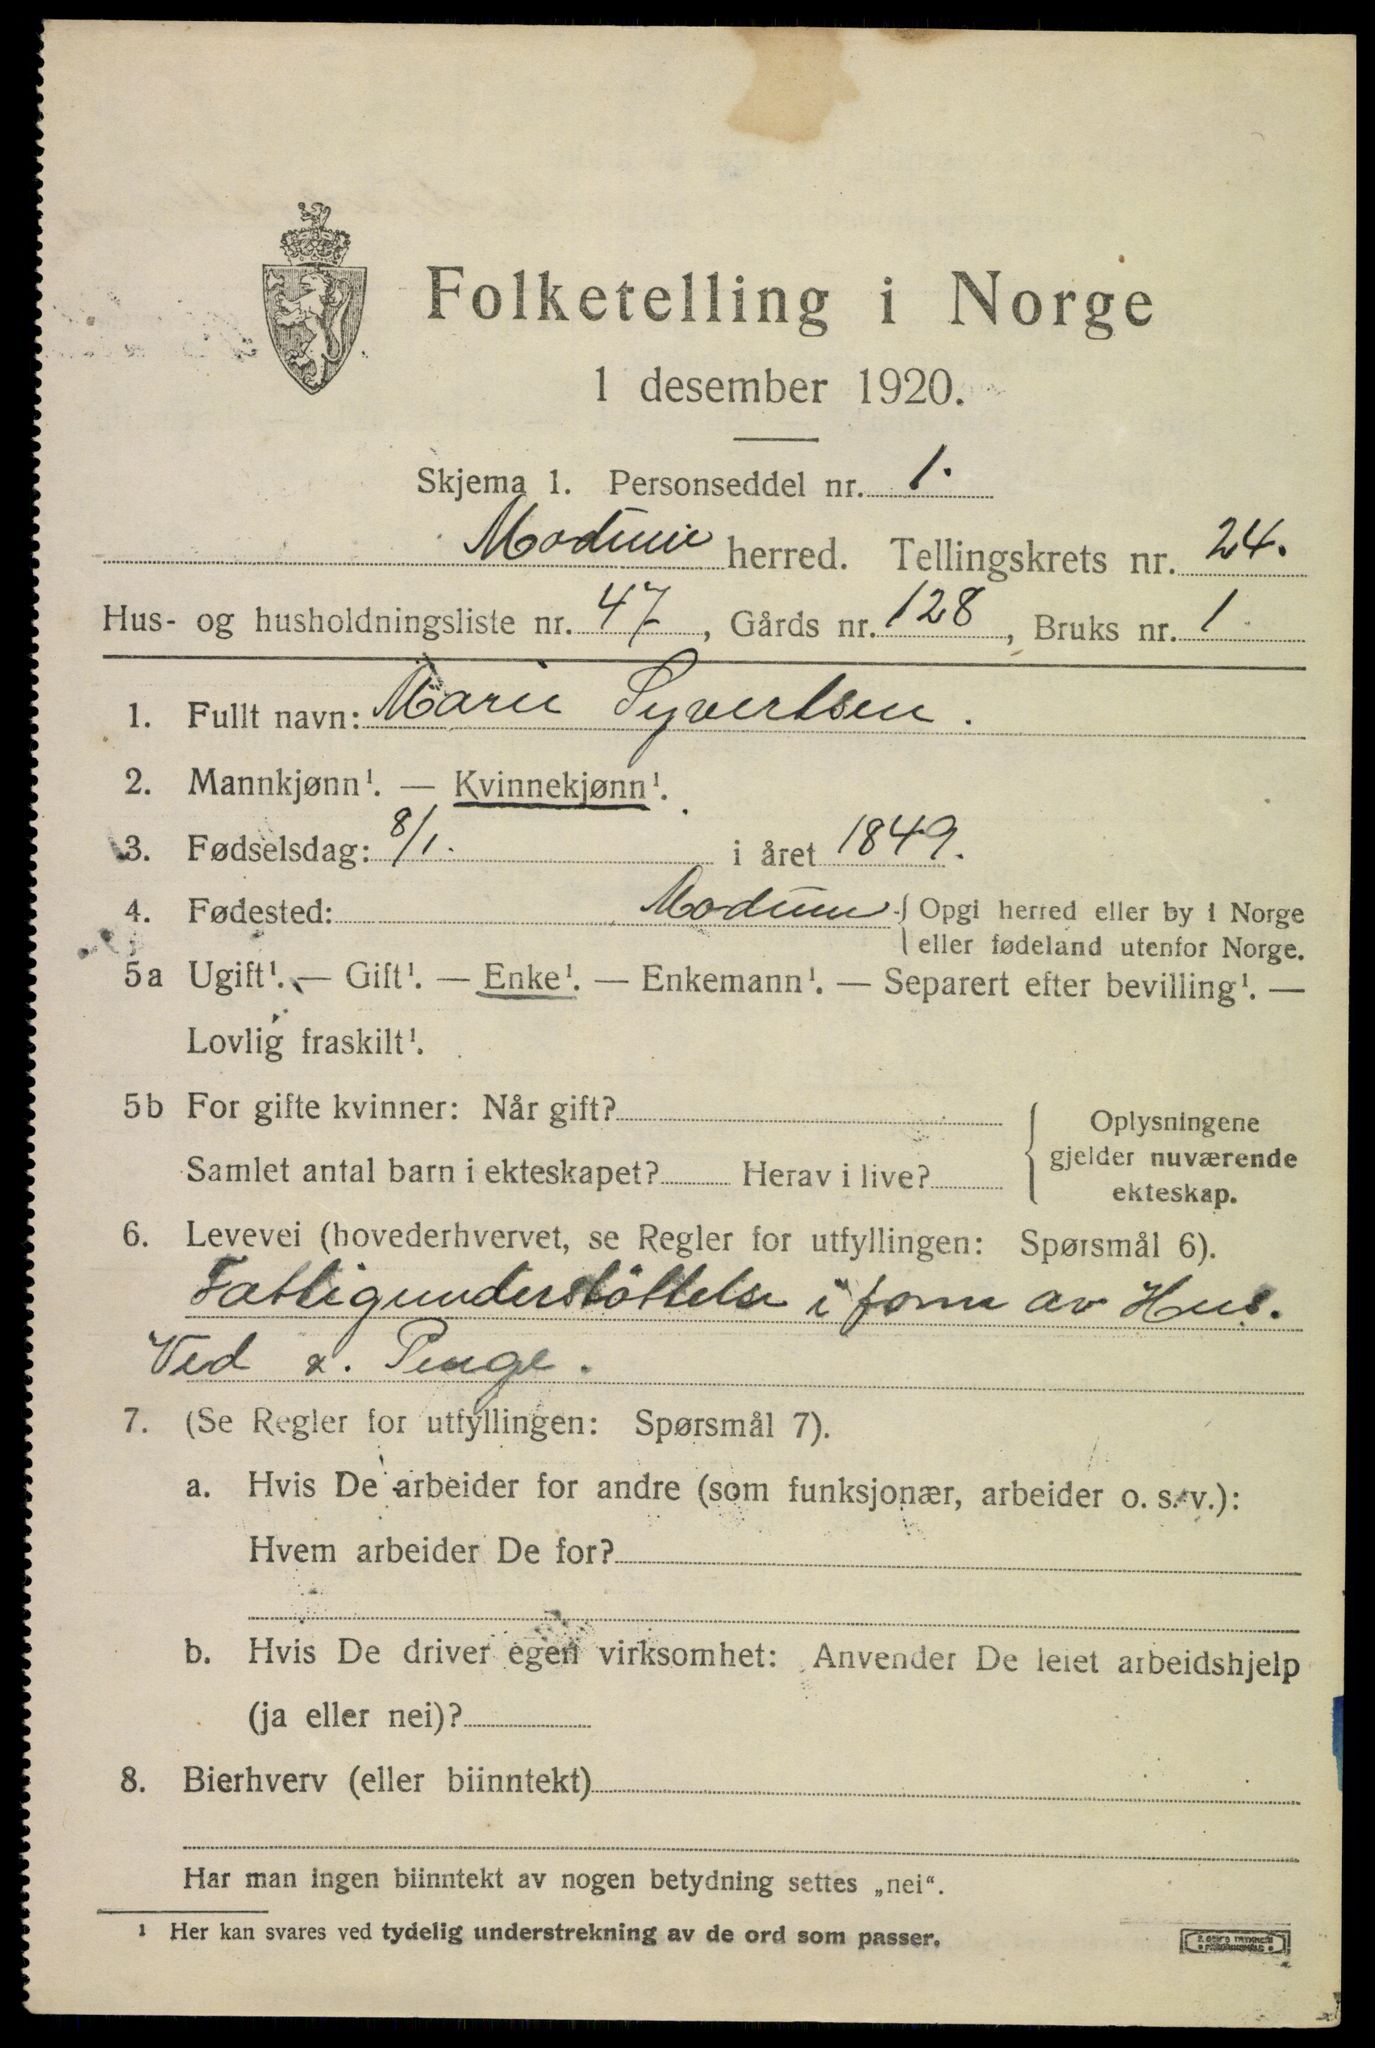 Folketelling i Norge
1 desember 1920.
Skjema 1. Personseddel nr. 1.
Modum herred. Tellingskrets nr. 24.
Hus- og husholdningsliste nr. 47, Gårds nr. 128, Bruks nr. 1
1. Fullt navn: Marie Syvertsen.
2. Mannkjønn¹. — Kvinnekjønn¹.
3. Fødselsdag: 8/1. i året 1849.
4. Fødested: Modum { Opgi herred eller by i Norge
eller fødeland utenfor Norge.
5a Ugift¹. — Gift¹. — Enke¹. — Enkemann¹. — Separert efter bevilling¹. —
Lovlig fraskilt¹.
5b For gifte kvinner: Når gift?
Samlet antal barn i ekteskapet? Herav i live?
{ Oplysningene
gjelder nuværende
ekteskap.
6. Levevei (hovederhvervet, se Regler for utfyllingen: Spørsmål 6).
Fattigunderstöttelse i form av Hus.
Ved & Penge.
7. (Se Regler for utfyllingen: Spørsmål 7).
a. Hvis De arbeider for andre (som funksjonær, arbeider o. s. v.):
Hvem arbeider De for?
b. Hvis De driver egen virksomhet: Anvender De leiet arbeidshjelp
(ja eller nei)?
8. Bierhverv (eller biinntekt)
Har man ingen biinntekt av nogen betydning settes „nei“.
¹ Her kan svares ved tydelig understrekning av de ord som passer.